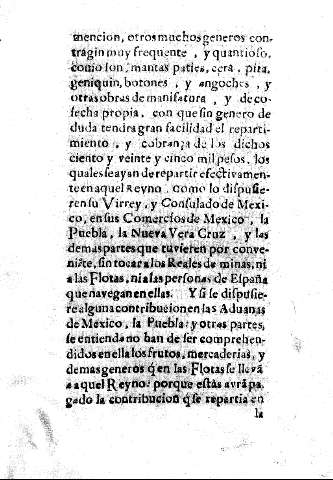 mencion, otros muchos generos con
tragin muy frequente, y quantioso,
como son, mantas paties, cera, pita,
geniquin, botones, y angoches, y
otras obras de manifatura, y de co-
secha propia, con que sin genero de
duda tendra gran facilidad el reparti-
miento, y cobranza de los dichos
ciento y veinte y cinco mil pesos, los
quales se ayan de repartir efectivamen-
te en aquel Reyno, como lo dispusie-
ren su Virrey, y Consulado de Mexi-
co, en sus Comercios de Mexico, la
Puebla, la Nueva Vera Cruz, y las
demas partes que tuvieren por conve-
niẽte, sin tocar a los Reales de minas, ni
a las Flotas, ni a las personas de España
que navegan en ellas. Y si se dispusie-
re alguna contribucion en las Aduanas
de Mexico, la Puebla, y otras partes,
se entienda no han de ser comprehen-
didos en ella los frutos, mercaderias, y
demas generos q̃ en las Flotas se llevã
a aquel Reyno: porque estàs avrà pa-
gado la contribucion q̃ se repartia en
la